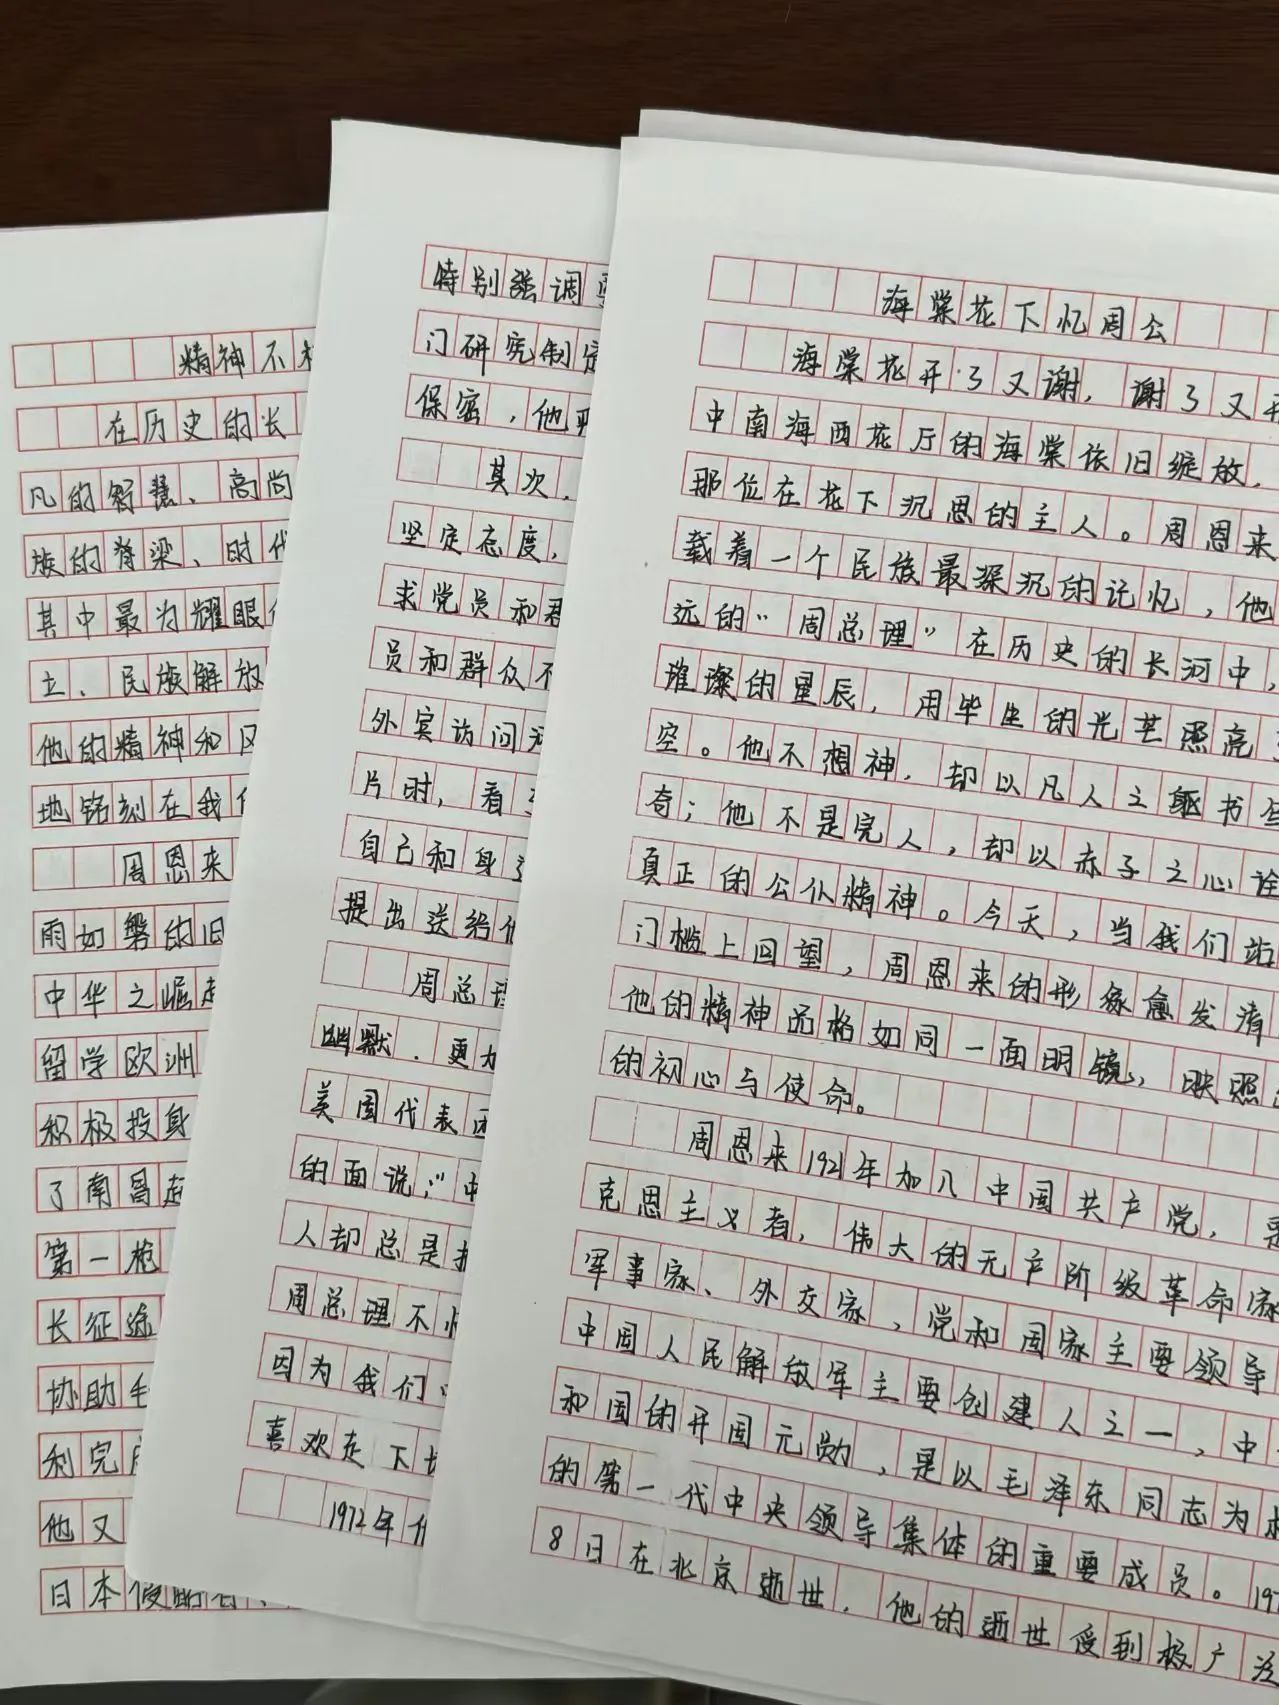 精神不
在历史的长
凡的智慧、高尚
族的脊梁、时代
其中最为耀眼
立、民族解放
他的精神和风
地铭刻在我们
周恩来
雨如磐的旧
中华之崛起
留学欧洲
积极投身
了南昌起
第一枪
长征途
协助毛
利完成
他又
日本侵略者、
特别强调要
门研究制定
保密，他
其次，
坚定态度，
求党员和君
员和群众不
外宾访问河
片时，看到
自己和身边
提出送给他
周总理
幽默．更为
美国代表团
的面说：“中
人却总是
周总理不慌
因为我们
喜欢走下坡
1972年
海棠花下忆周公
海棠花开了又谢，谢了又开
中南海西花厅的海棠依旧绽放，
那位在花下沉思的主人。周恩来
载着一个民族最深沉的记忆，他
远的“周总理”在历史的长河中，
璀璨的星辰，用毕生的光芒照亮
空。他不想神，却以凡人之躯书
奇；他不是完人，却以赤子之心诠
真正的公仆精神。今天，当我们站
门槛上回望，周恩来的形象愈发清
他的精神品格如同一面明镜，映照
的初心与使命。
周恩来1921年加入中国共产党，是
克思主义者，伟大的无产阶级革命家
军事家、外交家，党和国家主要领导
中国人民解放军主要创建人之一，中
和国的开国元勋，是以毛泽东同志为
的第一代中央领导集体的重要成员。197
8日在北京逝世．他的逝世受到极广泛